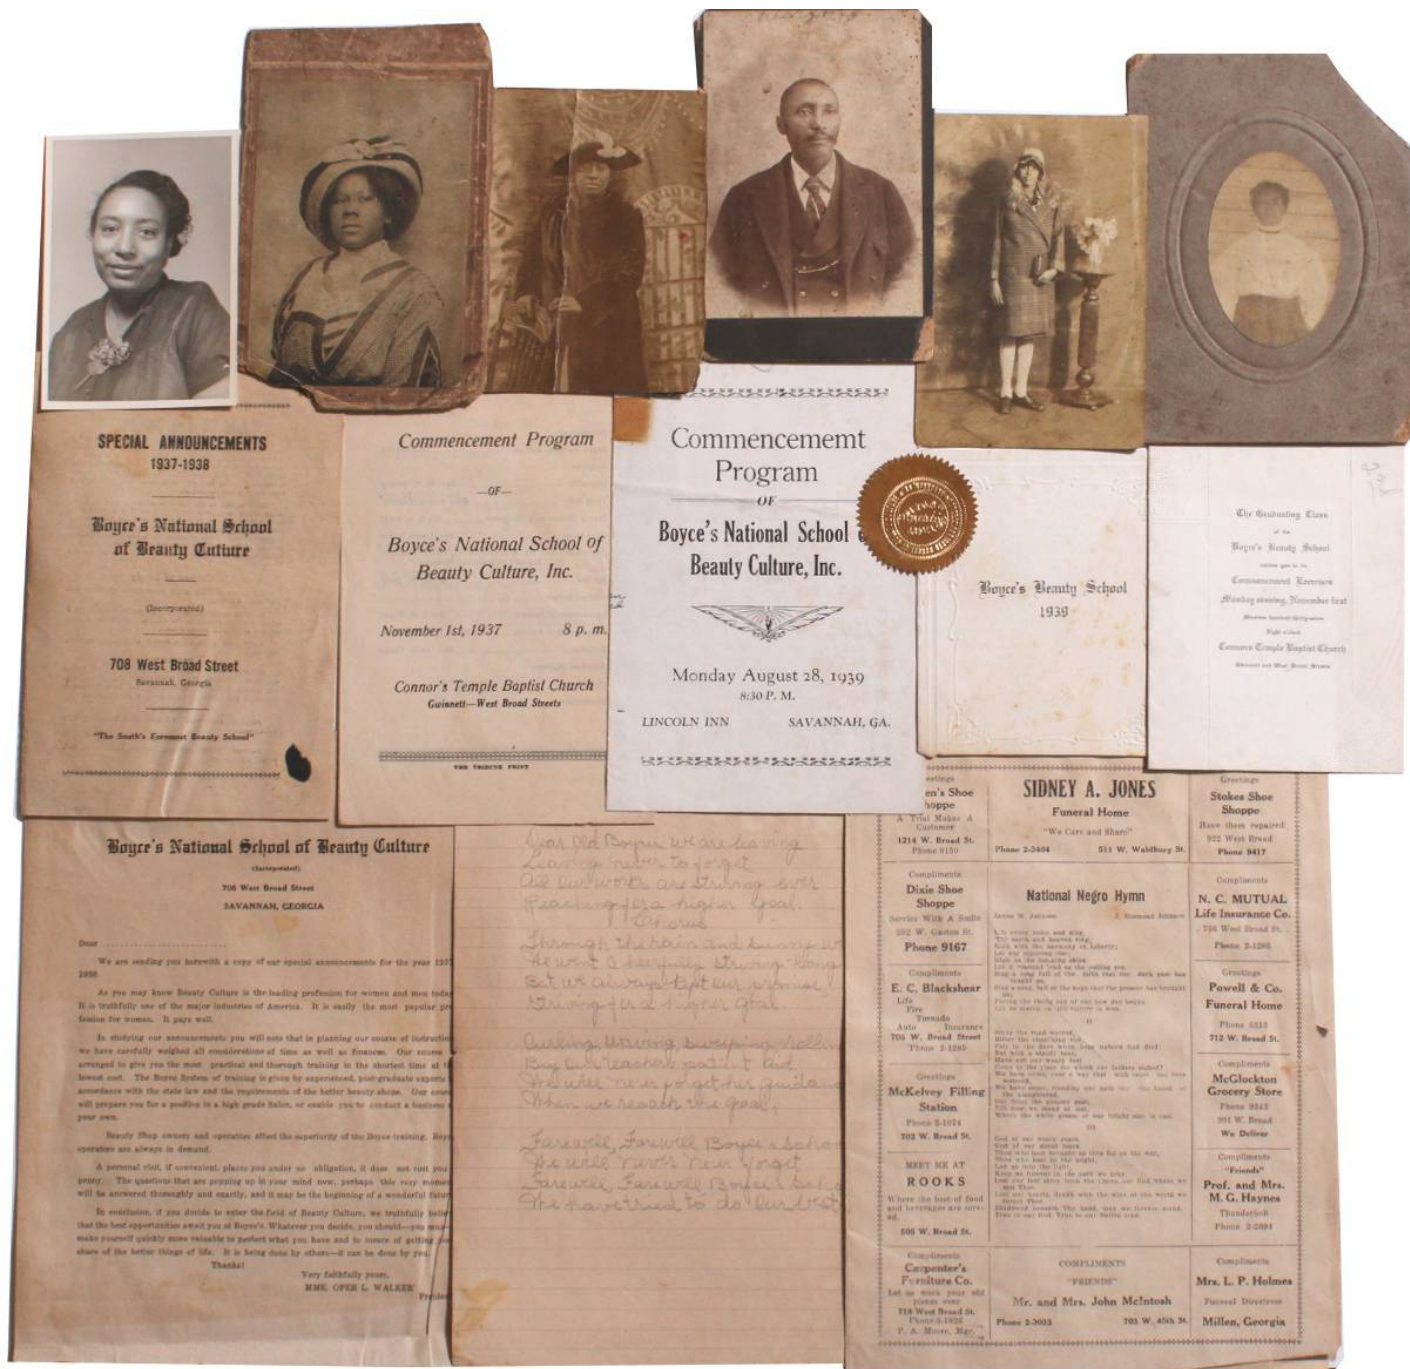 SPECIAL ANNOUNCEMENTS
1937-1938
Boyce's National School
of Beauty Culture
(Incorporated)
708 West Broad Street
Savannah, Georgia
"The South's Foremost Beauty School"
Commencement Program
—OF—
Boyce's National School of
Beauty Culture, Inc.
November 1st, 1937 8 p. m.
Connor's Temple Baptist Church
Gwinnett—West Broad Streets
THE TRIBUNE PRINT
Commencememt
Program
OF
Boyce's National School
Beauty Culture, Inc.
Monday August 28, 1939
8:30 P. M.
LINCOLN INN SAVANNAH, GA.
Boyce's Beauty School
1939
The Graduating Class
of the
Boyce's Beauty School
invites you to its
Commencement Exercises
Monday evening, November first
Nineteen hundred thirty-seven
Eight o'clock
Connors Temple Baptist Church
Gwinnett and West Broad Streets
Boyce's National School of Beauty Culture
(Incorporated)
708 West Broad Street
SAVANNAH, GEORGIA
Dear
We are sending you herewith a copy of our special announcements for the year
1938.
As you may know Beauty Culture is the leading profession for women and men
It is truthfully one of the major industries of America. It is easily the most popular
fession for woman. It pays well.
In studying our announcements you will note that in planning our course of
we have carefully weighed all considerations of time as well as finances. Our course
arranged to give you the most practical and thorough training in the shortest time
lowest cost. The Boyce System of training is given by experienced, post-graduate experts
accordance with the state law and the requirements of the better beauty shops. Our
will prepare you for a position in a high grade Salon, or enable you to conduct a business
your own.
Beauty Shop owners and operators attest the superiority of the Boyce training.
operators are always in demand.
A personal visit, if convenient, places you under no obligation, it does not cost you
penny. The questions that are popping up in your mind now, perhaps this very
will be answered thoroughly and exactly, and it may be the beginning of a wonderful
In conclusion, if you decide to enter the field of Beauty Culture, we truthfully
that the best opportunities await you at Boyce's. Whatever you decide, you should—you
make yourself quickly more valuable to protect what you have and to insure of getting
share of the better things of life. It is being done by others—it can be done by you.
Thanks!
Very faithfully yours,
MME. OPER L. WALKER
Dear Old Boyces we are leaving
Leaving never to forget
All our works are striving ever
Reaching for a higher Goal.
Chorus
Through the rain and
We went cheerfully striving
But we always kept our promise
Striving for a higher goal
Curling, Waving,
By our teachers patient aid
We will never forget her
When we reach the goal,
Farewell, Farewell Boyce's
We will never never forget
Farewell, Farewell Boyce's
We have tried to do our best
Greetings
Shoe
Shoppe
A Trial Makes A
Customer
1214 W. Broad St.
Phone 9150
Compliments
Dixie Shoe
Shoppe
Service With A Smile
202 W. Gaston St.
Phone 9167
Compliments
E. C. Blackshear
Life
Fire
Tornado
Auto Insurance
706 W. Broad Street
Greetings
McKelvey Filling
Station
Phone 2-1074
702 W. Broad St.
MEET ME AT
ROOKS
Where the best of food
and beverages are serv-
ed.
506 W. Broad St.
Compliments
Carpenter's
Furniture Co.
Let us work your old
pieces over
718 West Broad St.
P. A. Moore, Mgr.
SIDNEY A. JONES
Funeral Home
"We Care and Share"
Phone 2-3404 511 W. Waldburg St.
National Negro Hymn
James W. Johnson J. Rosamond Johnson
Lift every voice and sing,
Till earth and heaven ring,
Ring with the harmony of Liberty;
Let our rejoicing rise,
High as the listening skies
II
III
COMPLIMENTS
"FRIENDS"
Mr. and Mrs. John McIntosh
Phone 2-3053 703 W. 45th St.
Greetings
Stokes Shoe
Shoppe
Have them repaired
922 West Broad
Phone 9417
Compliments
N. C. MUTUAL
Life Insurance Co.
Phone 2-1285
Greetings
Powell & Co.
Funeral Home
712 W. Broad St.
Compliments
McGlockton
Grocery Store
Phone 9343
991 W. Broad
We Deliver
Compliments
"Friends"
Prof. and Mrs.
M. G. Haynes
Thunderbolt
Phone 2-2894
Compliments
Mrs. L. P. Holmes
Funeral Directress
Millen, Georgia